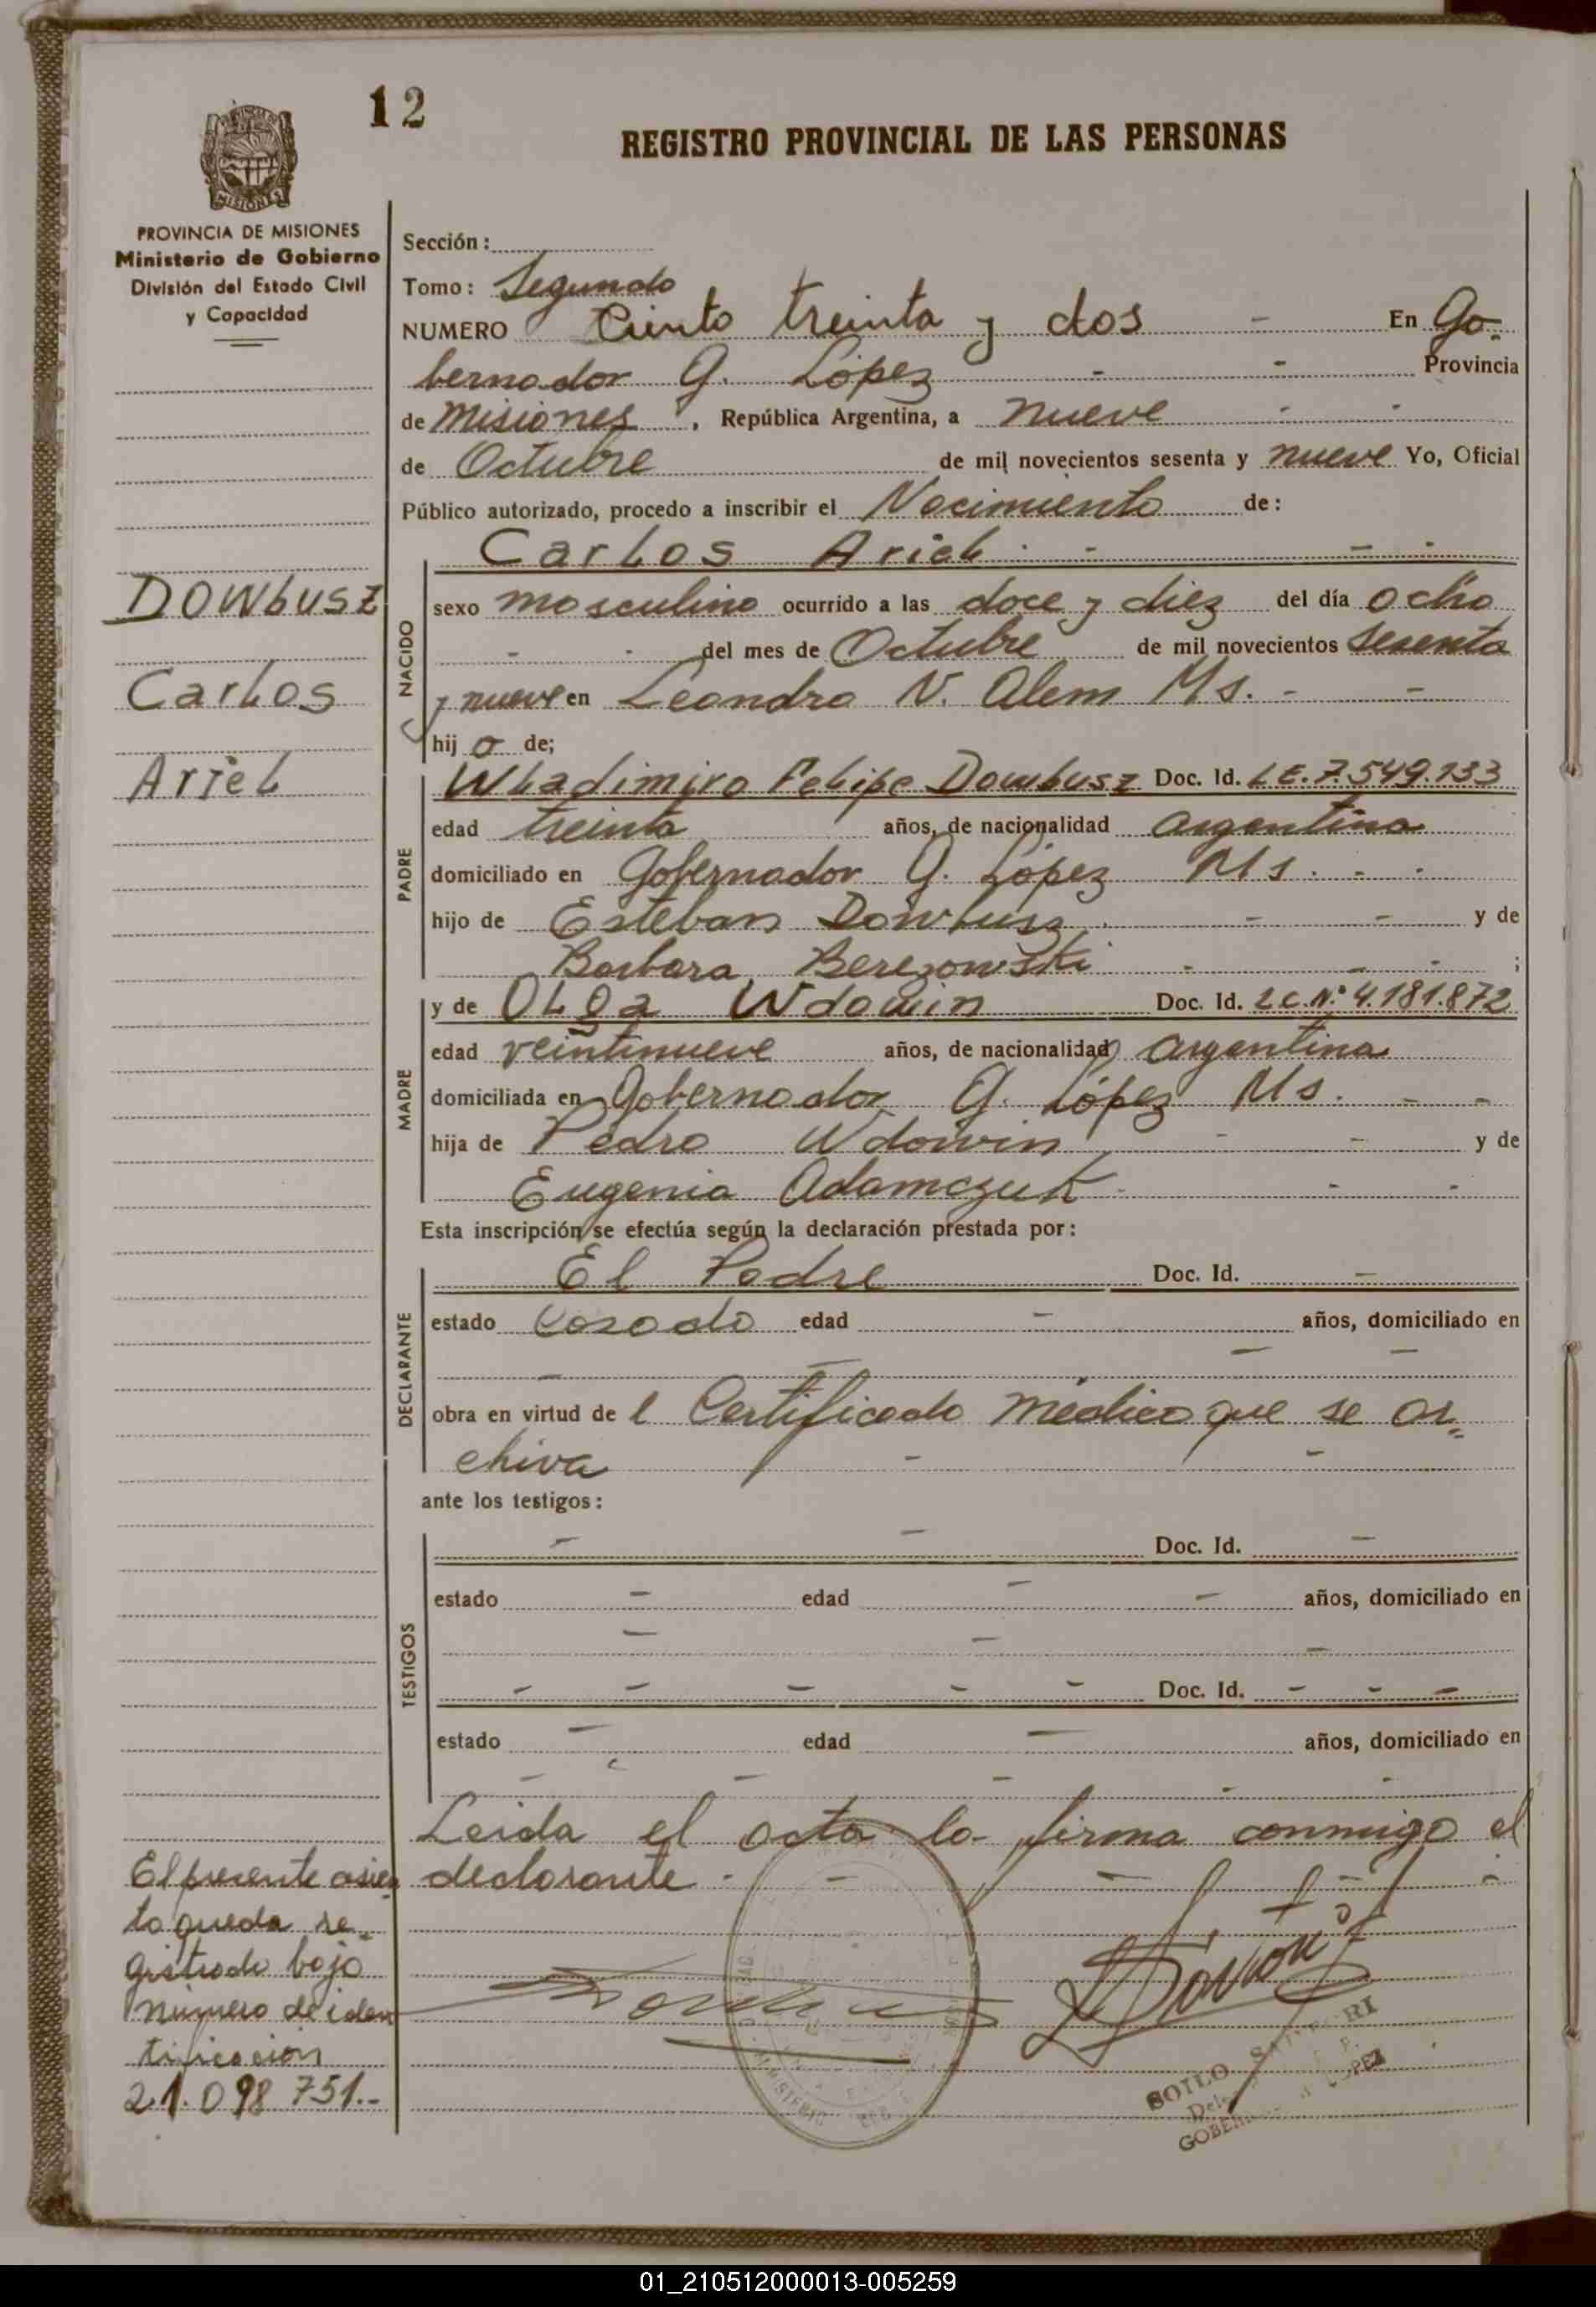 12
REGISTRO PROVINCIAL DE LAS PERSONAS
PROVINCIA DE MISIONES
Ministerio de Gobierno
División del Estado Civil
y Capacidad
Sección:
Tomo: Segundo
NUMERO Ciento treinta y dos - En Go=
bernador G. López - - Provincia
de Misiones, República Argentina, a nueve - -
de Octubre de mil novecientos sesenta y nueve Yo, Oficial
Público autorizado, procedo a inscribir el Nacimiento de:
Carlos Ariel - - - -
DOWbusz
Carlos
Ariel
NACIDO
sexo masculino ocurrido a las doce y diez del día ocho
- - del mes de Octubre de mil novecientos sesenta
y nueve en Leandro N. Alem Ms. - -
hijo de;
PADRE
Wladimiro Felipe Dowbusz Doc. Id. L.E. 7.549.133
edad treinta años, de nacionalidad argentina
domiciliado en Gobernador G. López Ms. - -
hijo de Esteban Dowbusz - - y de
Barbara Berezowski - - - ;
MADRE
y de Olga Wdowin Doc. Id. L.C. Nº 4.181.872
edad veintinueve años, de nacionalidad argentina
domiciliada en Gobernador G. López Ms. - -
hija de Pedro Wdowin - - y de
Eugenia Adamczuk - - -
Esta inscripción se efectúa según la declaración prestada por:
DECLARANTE
El Padre Doc. Id. -
estado Casado edad - años, domiciliado en
- - - -
obra en virtud de l Certificado médico que se ar=
chiva - -
ante los testigos:
TESTIGOS
- - Doc. Id. -
estado - edad - - años, domiciliado en
- - -
- - - - - Doc. Id. - - -
estado - edad - años, domiciliado en
- - - - -
Leida el acta la firma conmigo el
declarante - - - - -
El presente asien
to queda re=
gistrado bajo
número de iden
tificación
21.098 751.-
SOILO
GOBER
LOPEZ
01_210512000013-005259